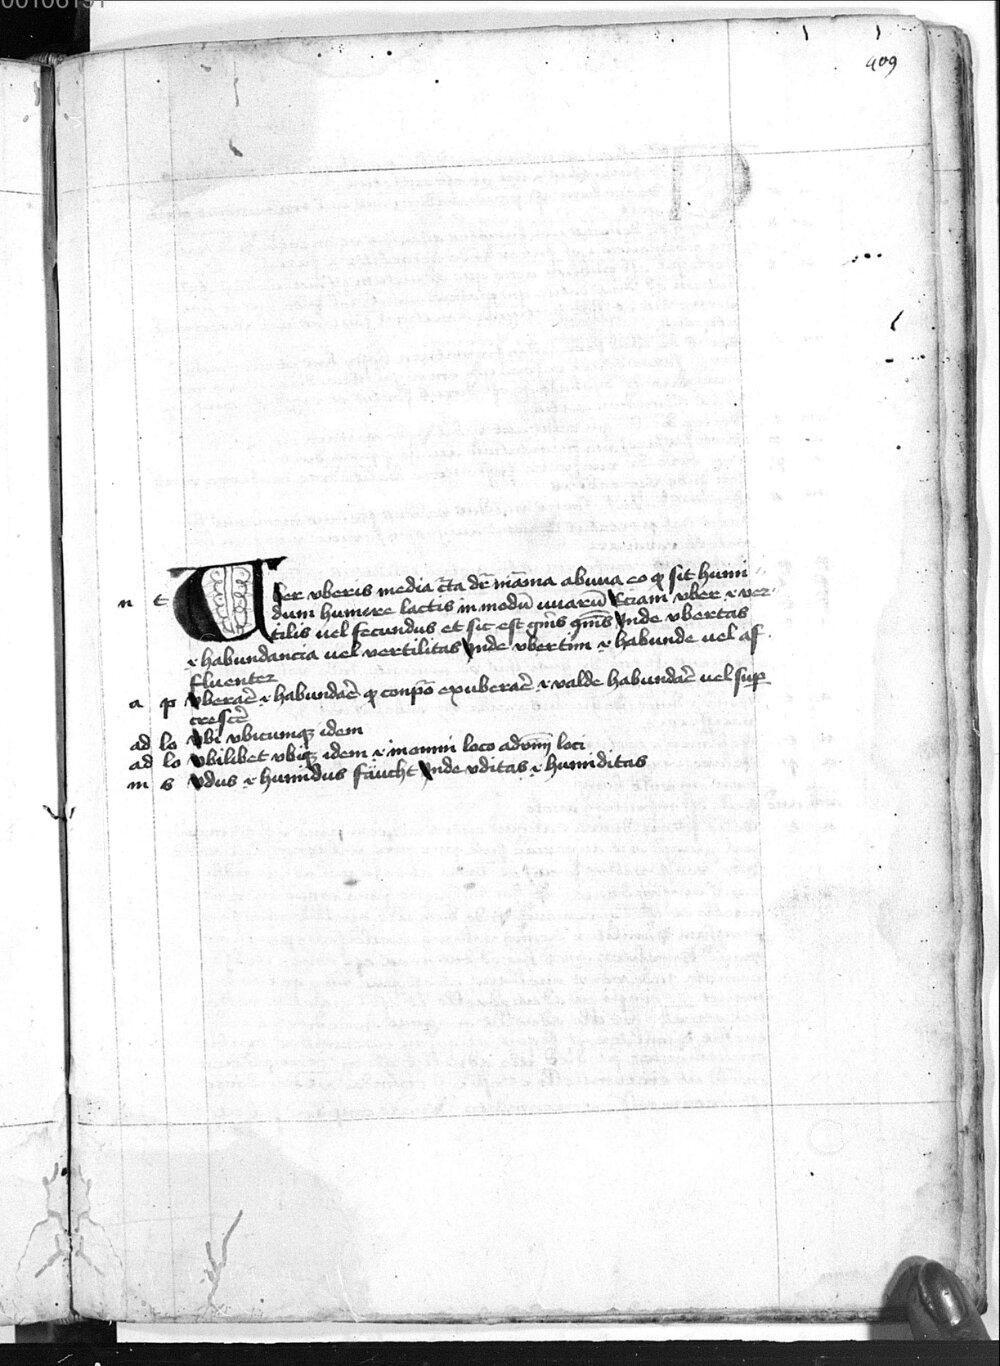 00106191
409
n t Uber vberis media c̄ta dr̄ mām̄a ab vua eo q̨ sit humi
dum humere lactis in modū uuarū Eciam vber ⁊ ver
tilis uel fecundus et sic est gn̄is Vnde vbertas
⁊ habundancia uel vertilitas Vnde vbertim ⁊ habunde uel af
fluenter
a p Vberar̄e ⁊ habundar̄e q̨ conpō exuberar̄e ⁊ valde habundar̄e uel sup̱
crescē
ad lo Vbi vbicumqꝫ idem
ad lo Vbilibet vbiqꝫ idem ⁊ in omni loco loci
m s Vdus ⁊ humidus fäucht Vnde vditas ⁊ humiditas